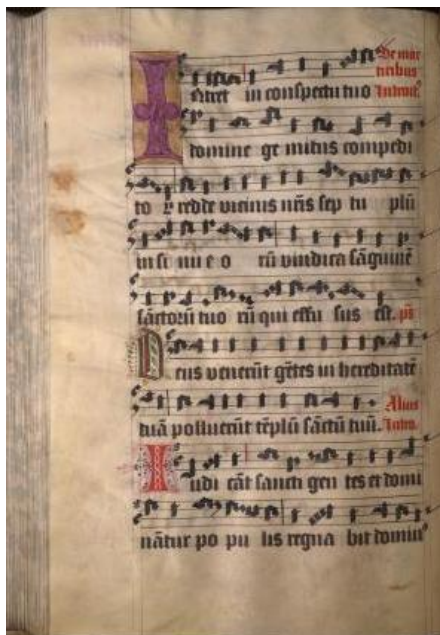 De mar
tiribus
Intret in conspectu tuo Introit⁹
domine ge mitus compedi
to ꝝ redde vicinis nr̄is sep tu plū
in si nu e o rū vindica sāguinē
sāctorū tuo rū qui effu sus est. ps̄
Deus venerūt gētes in hereditatē
tuā polluerūt tēplū sāctū tuū. Alius
Intro.
Iudi cāt sancti gen tes et domi
nātur po pu lis regna bit domin⁹